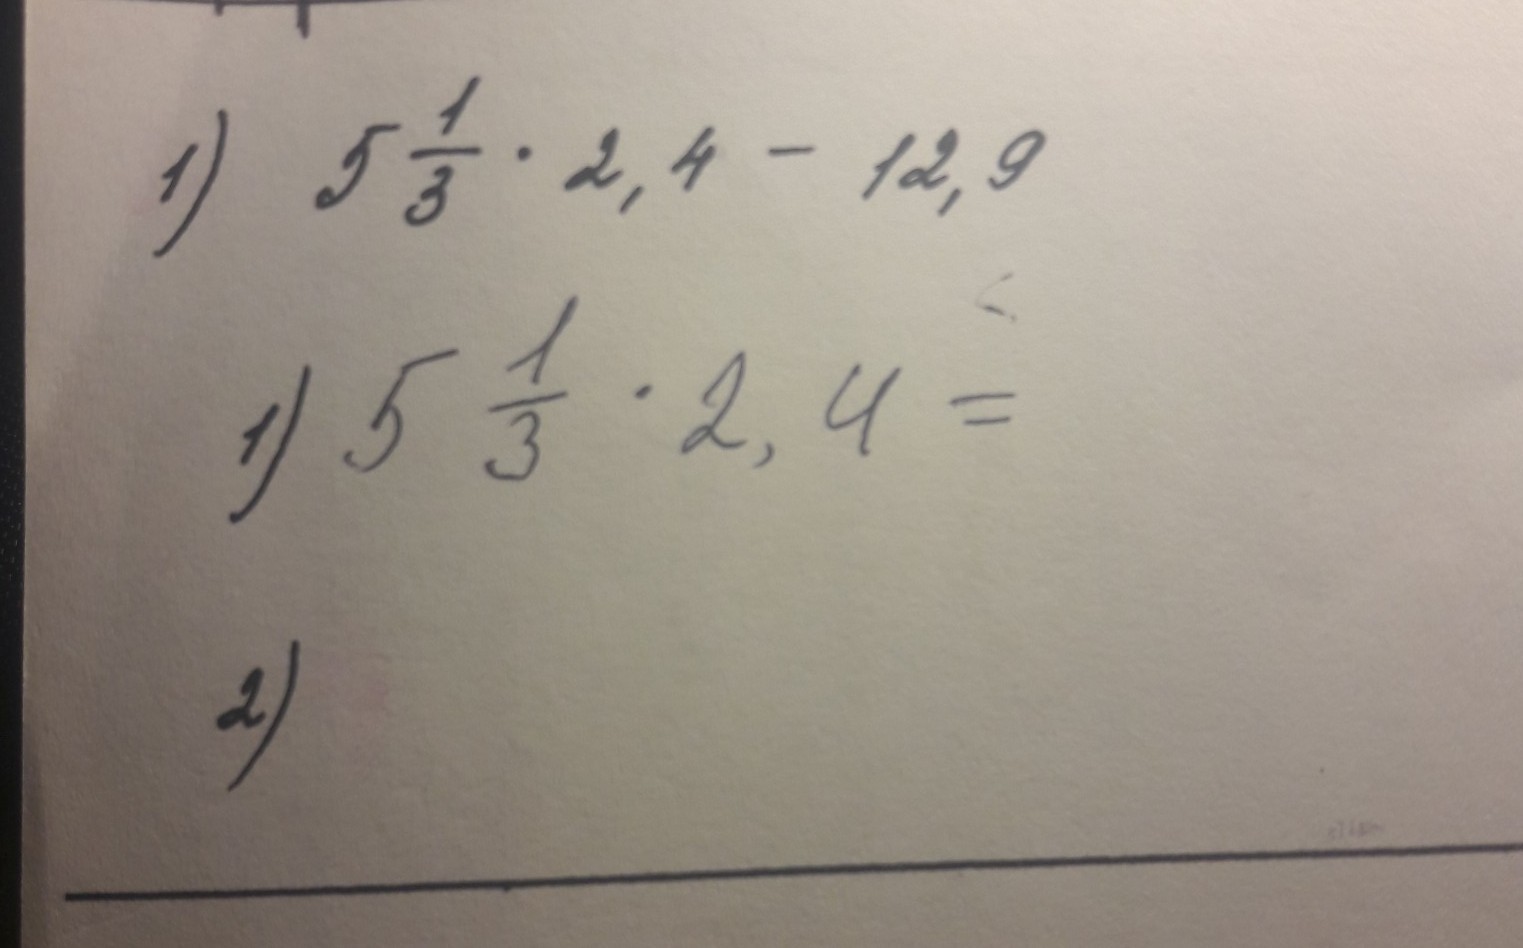 1) 5 1/3 · 2,4 − 12,9
1) 5 1/3 · 2,4 =
2)